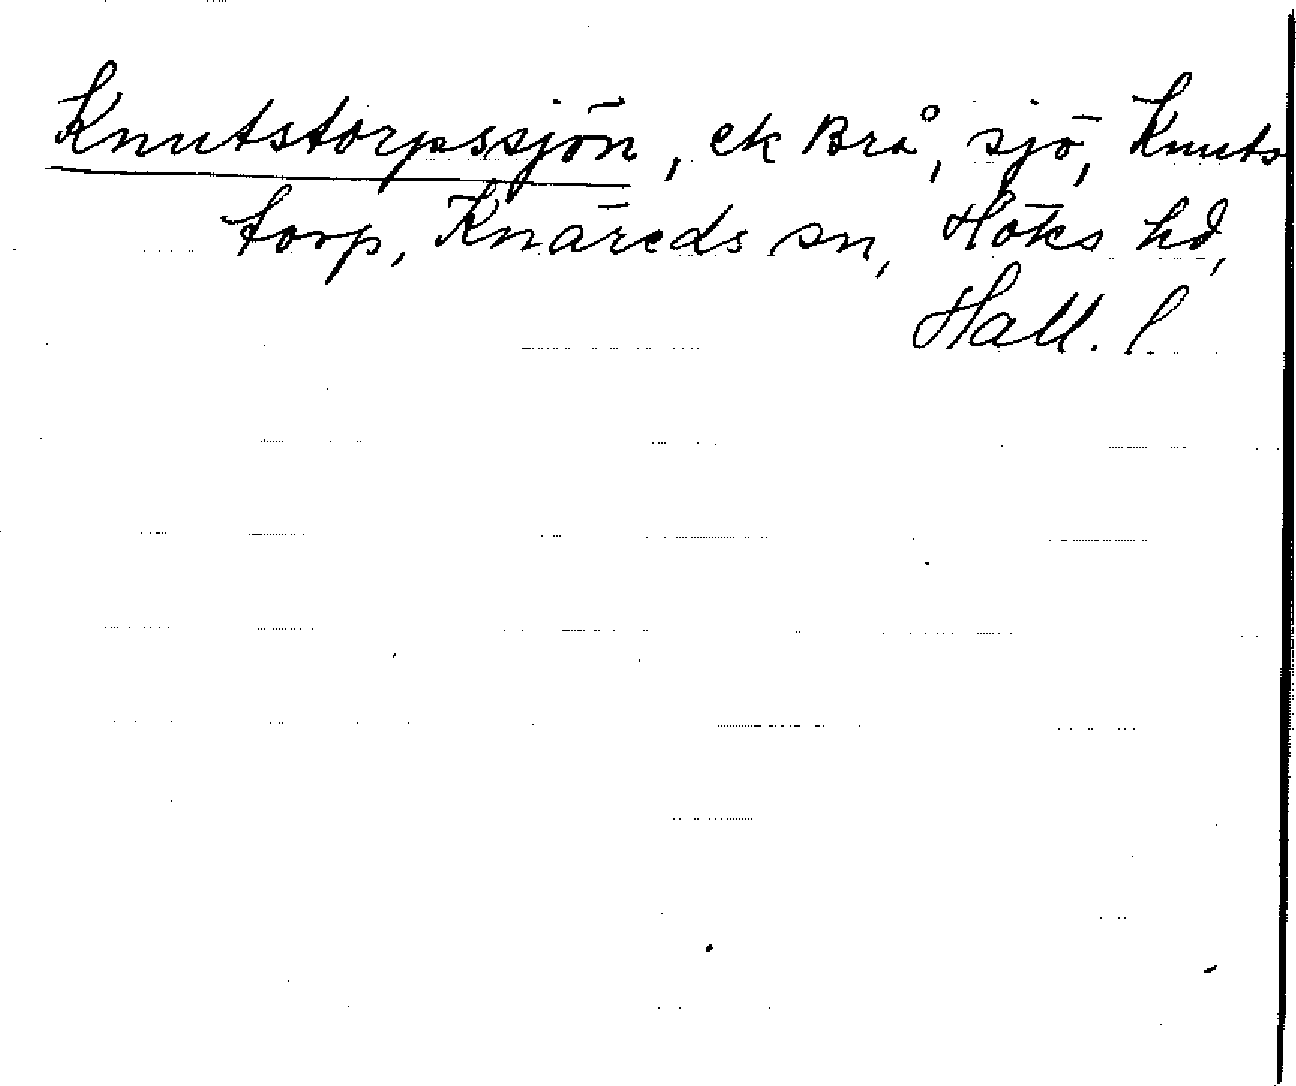 Knutstorpssjön, ek Brå, sjö, Knuts
torp, Knäreds sn, Höks hd,
Hall. l